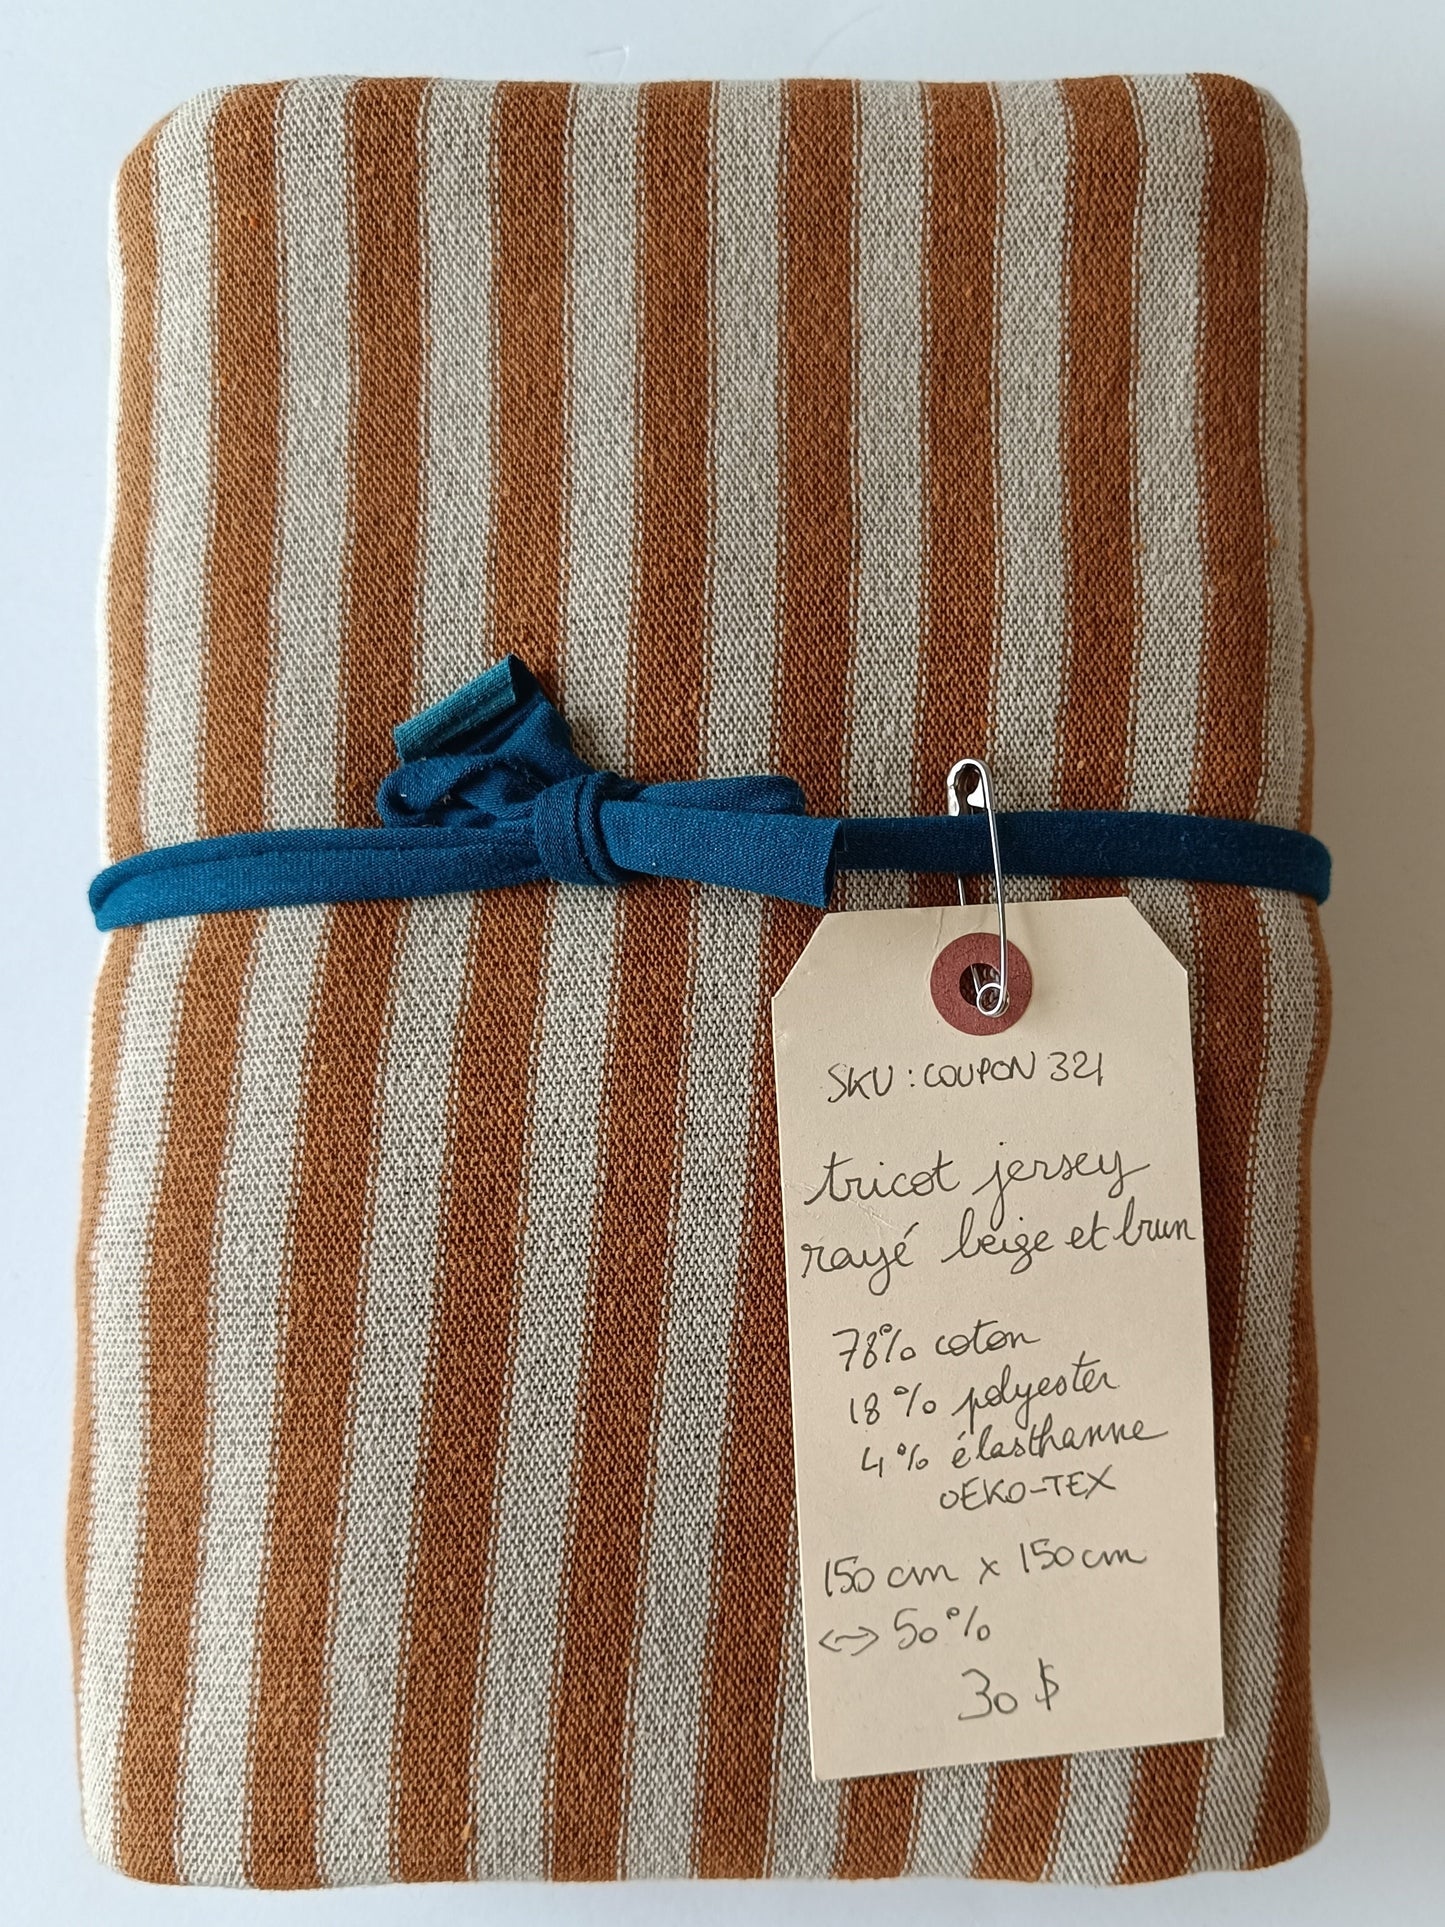 SKU : COUPON 321
tricot jersey
rayé beige et brun
78% coton
18% polyester
4% élasthanne
OEKO-TEX
150 cm x 150 cm
<-> 50%
30 $